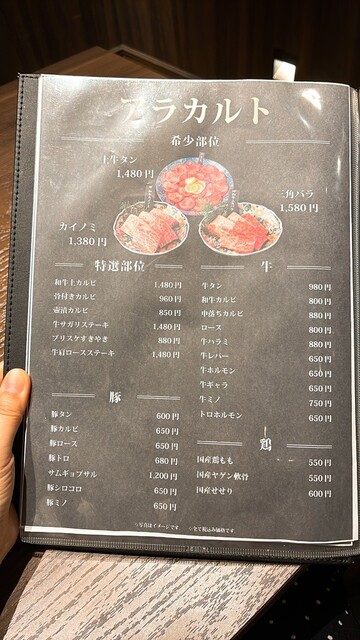 アラカルト
希少部位
上牛タン
1,480円
三角バラ
1,580円
カイノミ
1,380円
特選部位
和牛上カルビ 1,480円
骨付きカルビ 960円
壺漬カルビ 850円
牛サガリステーキ 1,480円
ブリスケすきやき 880円
牛肩ロースステーキ 1,480円
牛
牛タン 980円
和牛カルビ 800円
中落ちカルビ 880円
ロース 800円
牛ハラミ 880円
牛レバー 650円
牛ホルモン 650円
牛ギャラ 650円
牛ミノ 750円
トロホルモン 650円
豚
豚タン 600円
豚カルビ 650円
豚ロース 650円
豚トロ 680円
サムギョプサル 1,200円
豚シロコロ 650円
豚ミノ 650円
鶏
国産鶏もも 550円
国産ヤゲン軟骨 550円
国産せせり 600円
※写真はイメージです。 ※全て税込み価格です。